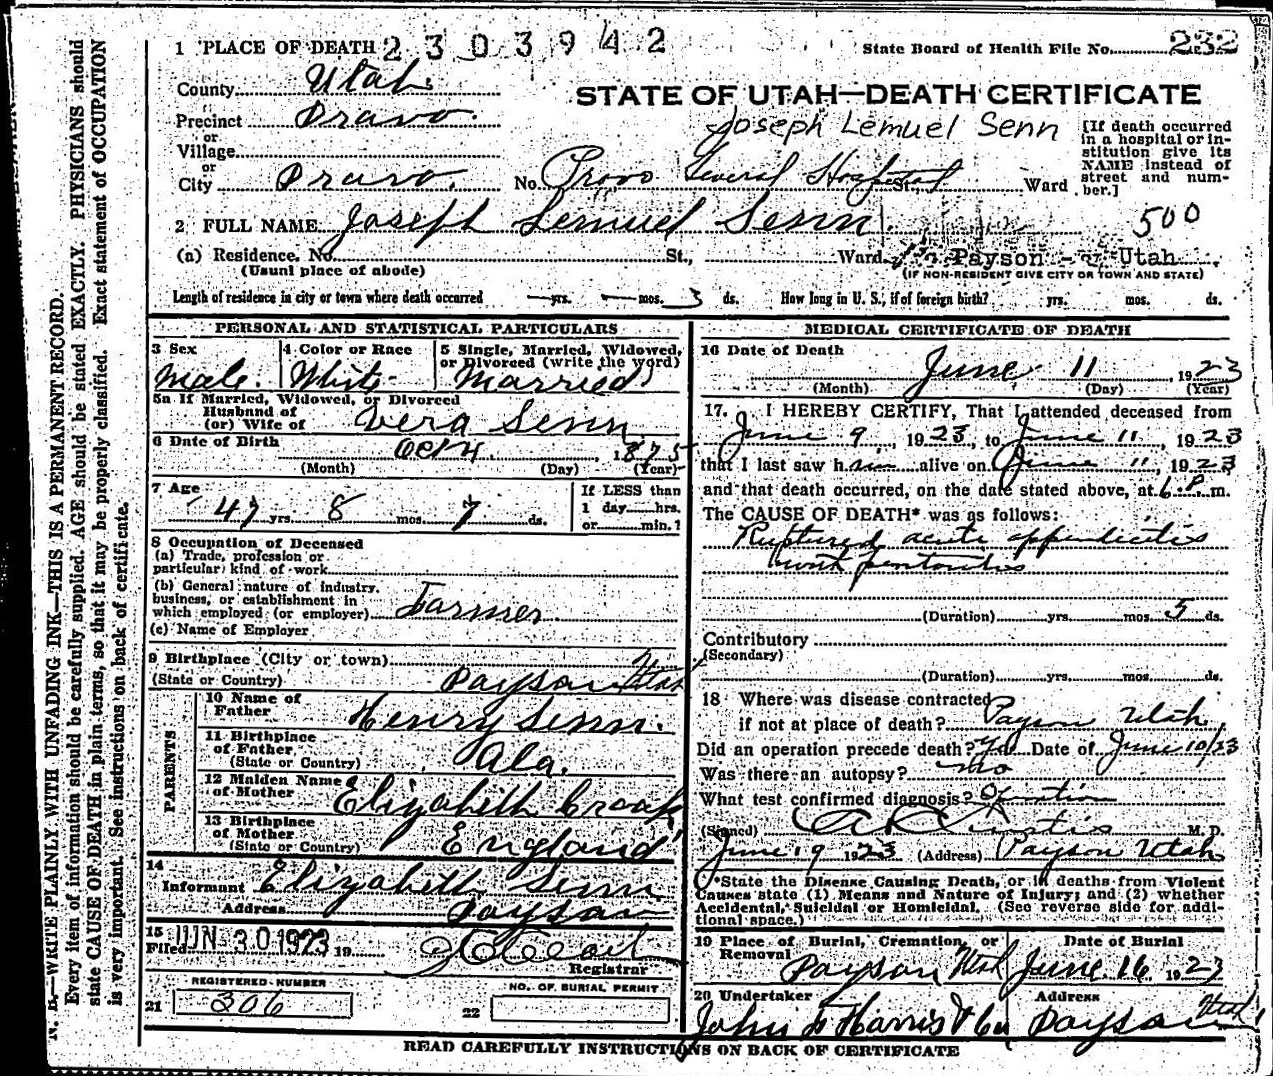 N. B.—WRITE PLAINLY WITH UNFADING INK—THIS IS A PERMANENT RECORD.
Every item of information should be carefully supplied. AGE should be stated EXACTLY. PHYSICIANS should
state CAUSE OF DEATH in plain terms, so that it may be properly classified. Exact statement of OCCUPATION
is very important. See instructions on back of certificate.
1 PLACE OF DEATH 2303942
State Board of Health File No. 232
County Utah
STATE OF UTAH—DEATH CERTIFICATE
Precinct Provo
Joseph Lemuel Senn
or
Village
or
City Provo. No. Provo General Hospital St., Ward
[If death occurred
in a hospital or in-
stitution give its
NAME instead of
street and num-
ber.]
2 FULL NAME Joseph Lemuel Senn
500
(a) Residence. No. St., Ward Payson - Utah
(Usual place of abode)
(IF NON-RESIDENT GIVE CITY OR TOWN AND STATE)
Length of residence in city or town where death occurred — yrs. — mos. 3 ds. How long in U. S., if of foreign birth? yrs. mos. ds.
PERSONAL AND STATISTICAL PARTICULARS
3 Sex
Male.
4 Color or Race
White
5 Single, Married, Widowed,
or Divorced (write the word)
Married
5a If Married, Widowed, or Divorced
Husband of
(or) Wife of Vera Senn
6 Date of Birth Oct 4 1875
(Month) (Day) (Year)
7 Age
47 yrs. 8 mos. 7 ds.
If LESS than
1 day hrs.
or min.?
8 Occupation of Deceased
(a) Trade, profession or
particular kind of work
(b) General nature of industry,
business, or establishment in
which employed (or employer) Farmer
(c) Name of Employer
9 Birthplace (City or town)
(State or Country) Payson Utah
PARENTS
10 Name of
Father Henry Senn.
11 Birthplace
of Father
(State or Country) Ala.
12 Maiden Name
of Mother Elizabeth
13 Birthplace
of Mother
(State or Country) England
14
Informant Elizabeth Senn
Address Payson
15
Filed JUN 30 1923 19
Registrar
REGISTERED NUMBER
21 306
NO. OF BURIAL PERMIT
22
MEDICAL CERTIFICATE OF DEATH
16 Date of Death June 11, 1923
(Month) (Day) (Year)
17. I HEREBY CERTIFY, That I attended deceased from
June 9, 1923, to June 11, 1923
that I last saw him alive on June 11, 1923
and that death occurred, on the date stated above, at 6 P. m.
The CAUSE OF DEATH* was as follows:
Ruptured acute appendicitis
with peritonitis
(Duration) yrs. mos. 5 ds.
Contributory
(Secondary)
(Duration) yrs. mos. ds.
18 Where was disease contracted
if not at place of death? Payson Utah
Did an operation precede death? Yes Date of June 10/23
Was there an autopsy? no
What test confirmed diagnosis? Operation
(Signed) Curtis M. D.
June 19 1923 (Address) Payson Utah
*State the Disease Causing Death, or in deaths from Violent
Causes state (1) Means and Nature of Injury; and (2) whether
Accidental, Suicidal or Homicidal. (See reverse side for addi-
tional space.)
19 Place of Burial, Cremation, or
Removal
Payson Utah
Date of Burial
June 16 1923
20 Undertaker
John Harris & Co
Address
Payson Utah
READ CAREFULLY INSTRUCTIONS ON BACK OF CERTIFICATE